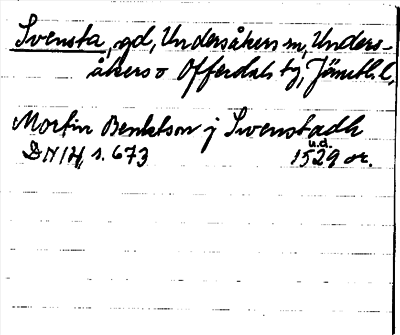 Svensta, gd, Undersåkers sn, Unders-
åkers o Offerdals tg, Jämtl. l,
Mortin Benktson j Swenstadh
u.d.
DN IH, s. 673 1529 or.